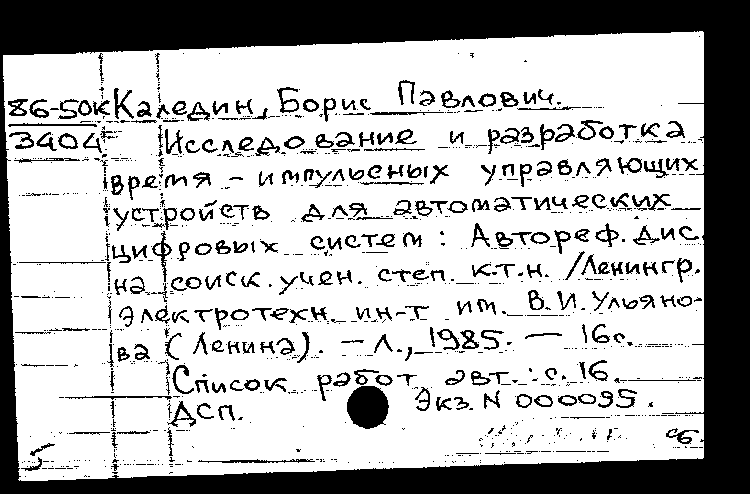 86-50к Каледин, Борис Павлович.
3404 Исследование и разработка
время-импульсных управляющих
устройств для автоматических
цифровых систем: Автореф. дис.
на соиск. учен. степ. к.т.н. /Ленингр.
электротехн. ин-т им. В.И.Ульяно-
ва (Ленина). — Л., 1985. — 16с.
Список работ авт.: с. 16.
ДСП. Экз. N 000095.
сб.
5